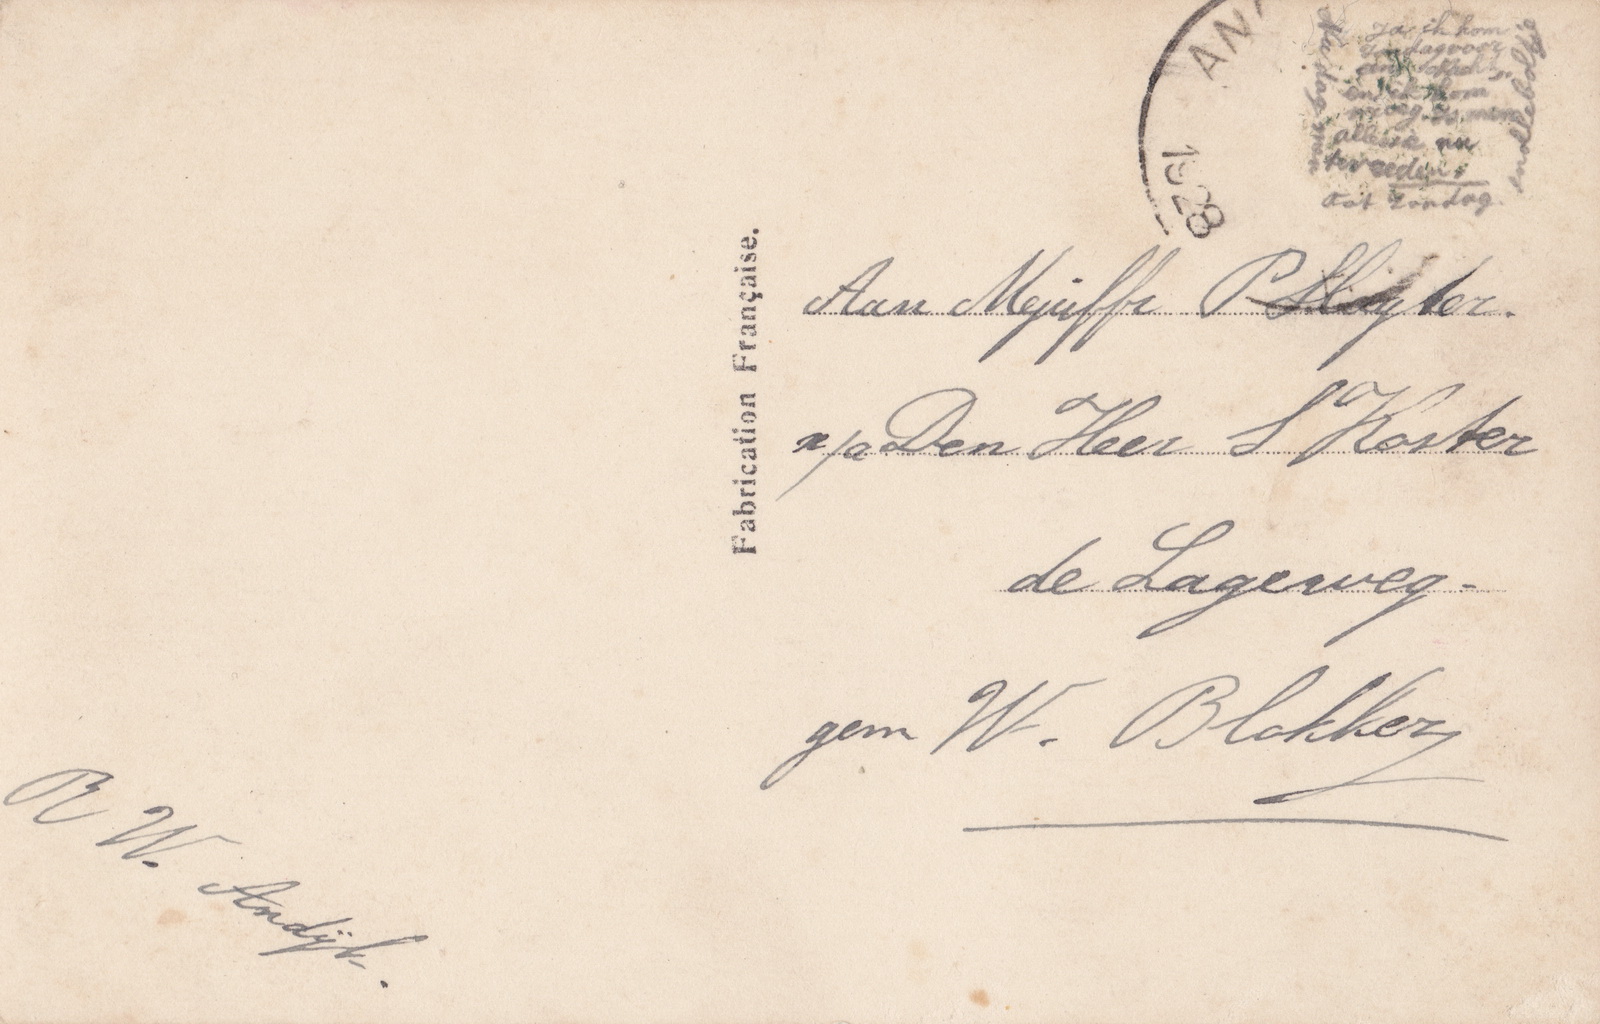 AN
1928
Ja ik kom
Zondagvoor
en ik kom
vroeg. Zo men
alleen nu
tevreden.
tot Zondag.
Fabrication Française.
Aan Mejuffr P Sluyter.
p/a Den Heer S Koster
de Lageweg-
gem W. Blokker
R W. Andijk.